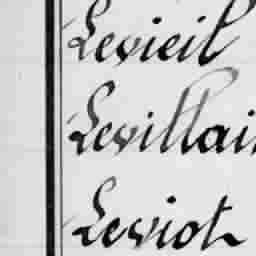 Levieil
Levillai
Leviot